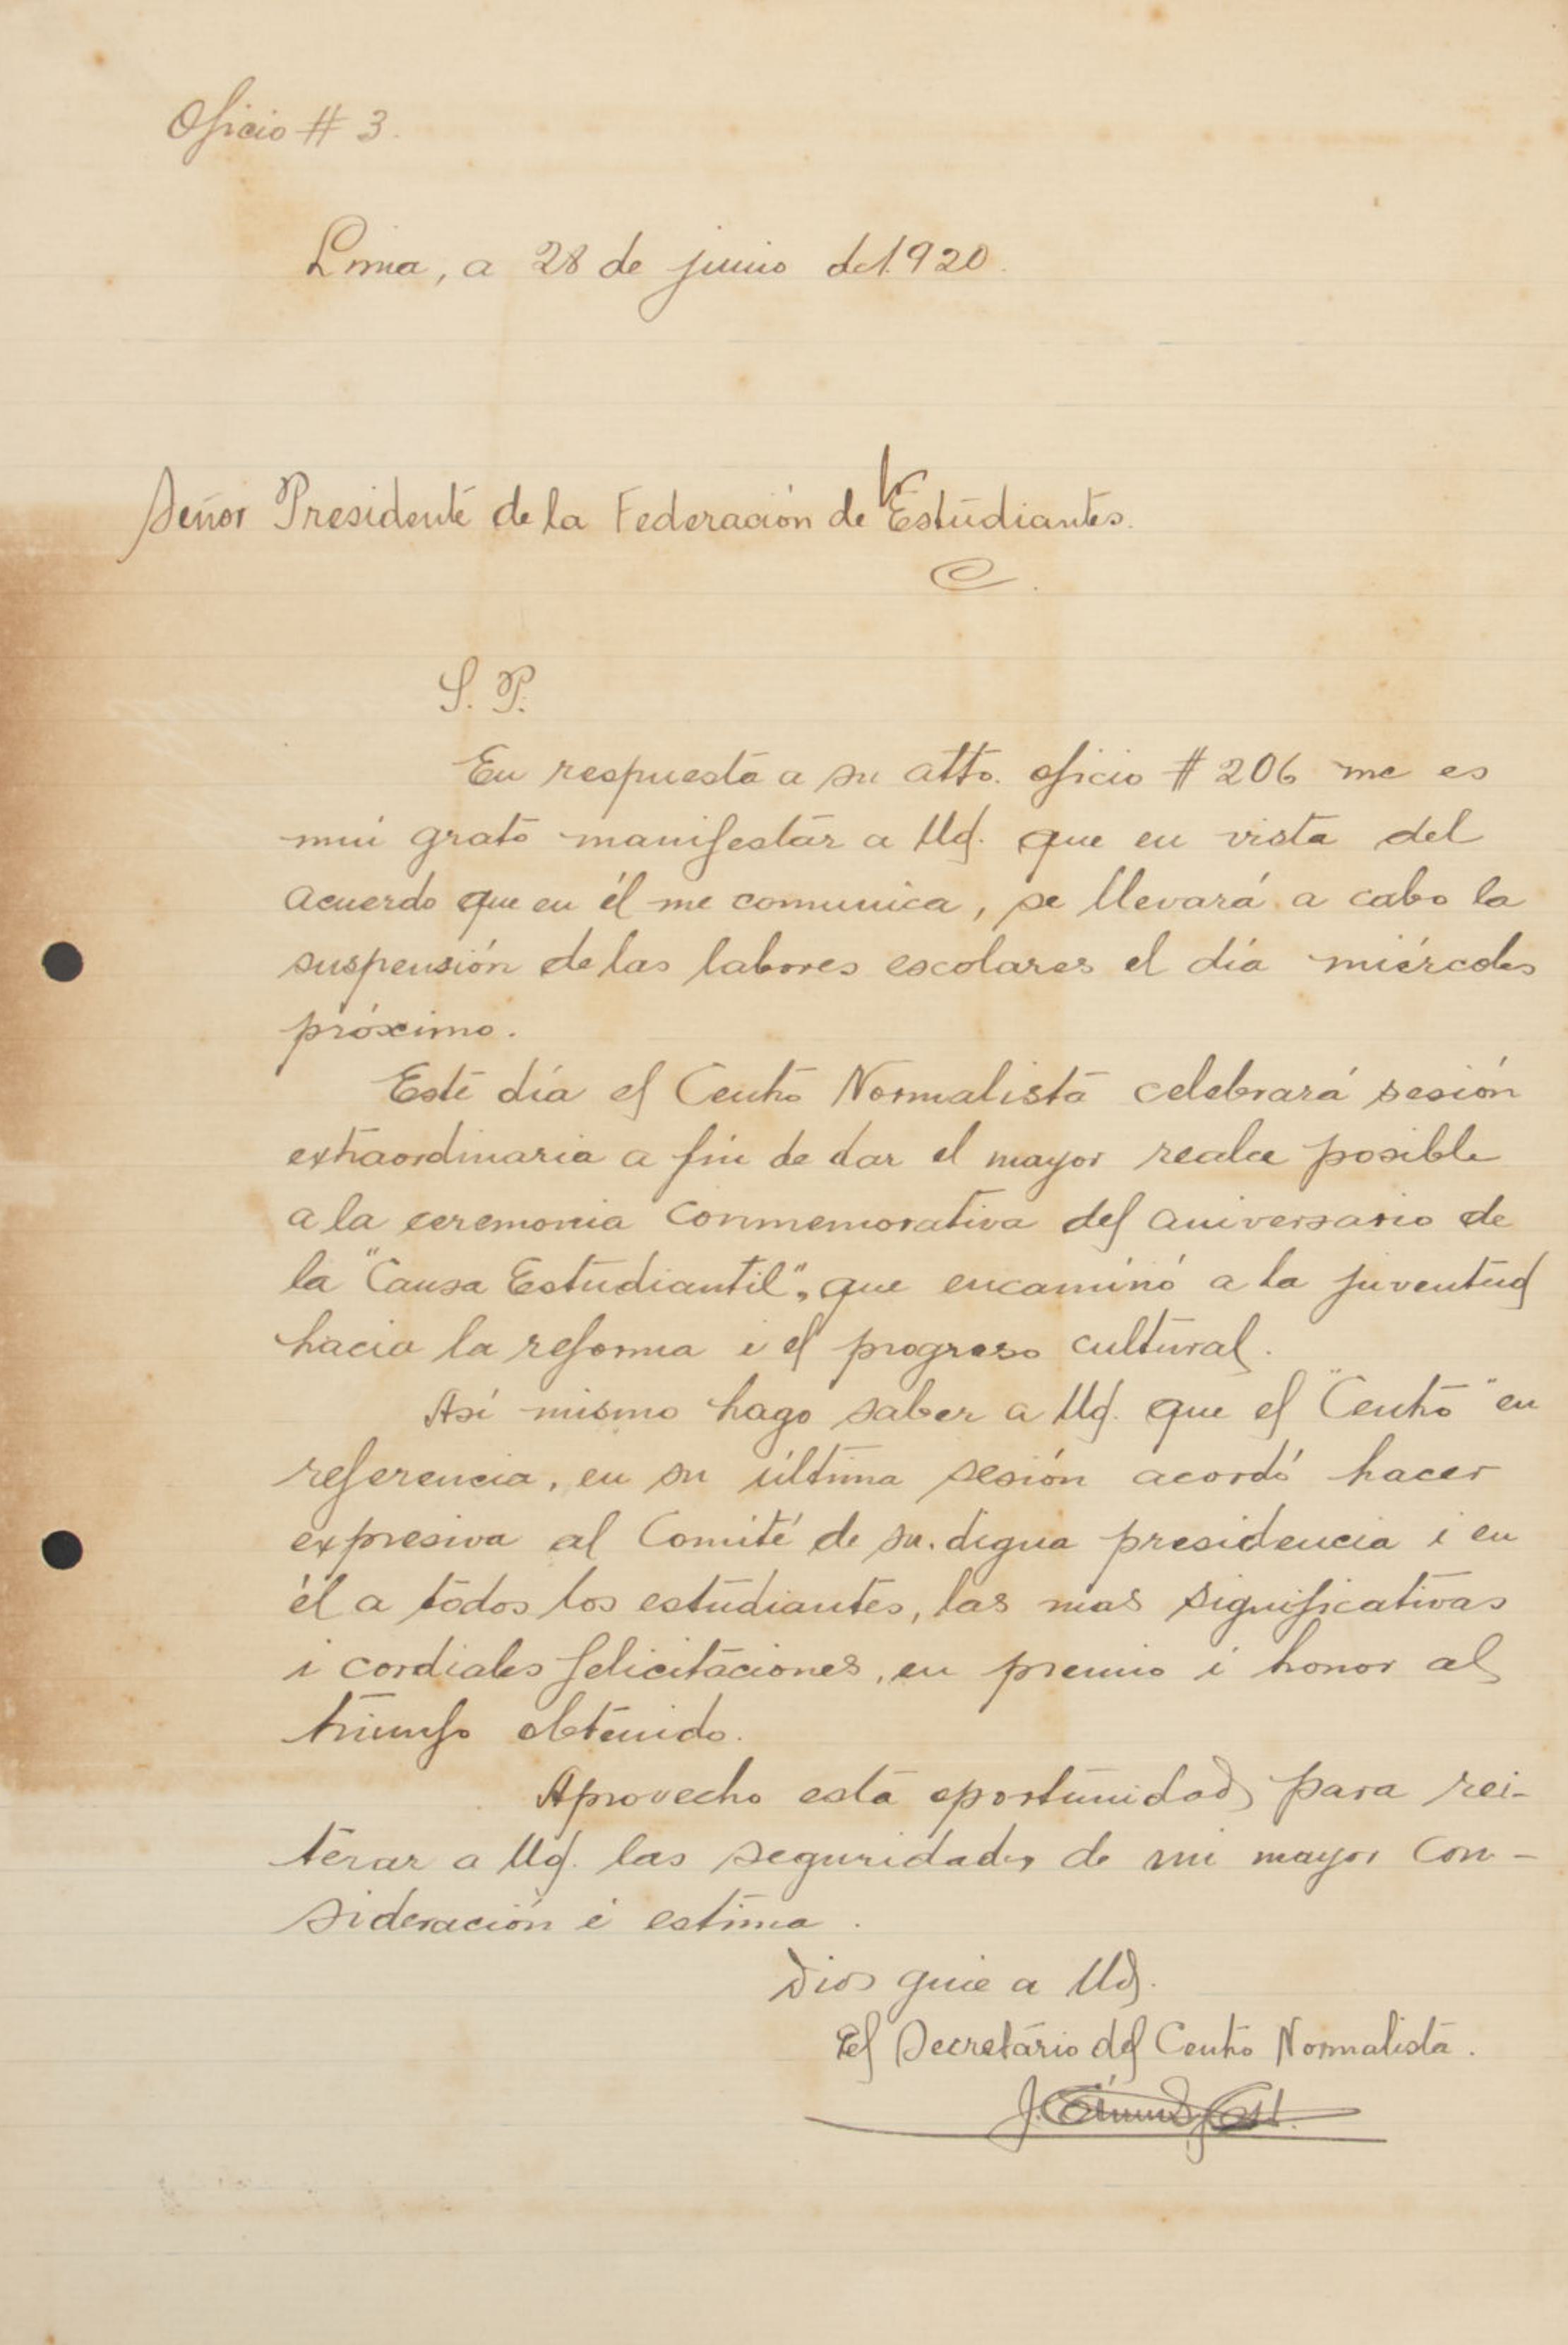 Oficio # 3.
Lima, a 28 de junio del 1920.
Señor Presidente de la Federación de Estudiantes.
S. P.
En respuesta a su atto. oficio # 206 me es
mui grato manifestar a Ud. que en vista del
acuerdo que en él me comunica, se llevará a cabo la
suspensión de las labores escolares el día miércoles
próximo.
Este día el Centro Normalista celebrará sesión
extraordinaria a fin de dar el mayor realce posible
a la ceremonia conmemorativa del aniversario de
la "Causa Estudiantil", que encaminó a la juventud
hacia la reforma i el progreso cultural.
Así mismo hago saber a Ud. que el "Centro" en
referencia, en su última sesión acordó hacer
expresiva al Comité de su digna presidencia i en
él a todos los estudiantes, las mas significativas
i cordiales felicitaciones, en premio i honor al
triunfo obtenido.
Aprovecho esta oportunidad para rei-
terar a Ud. las seguridades de mi mayor con-
sideración i estima.
Dios guie a Ud.
El Secretario del Centro Normalista.